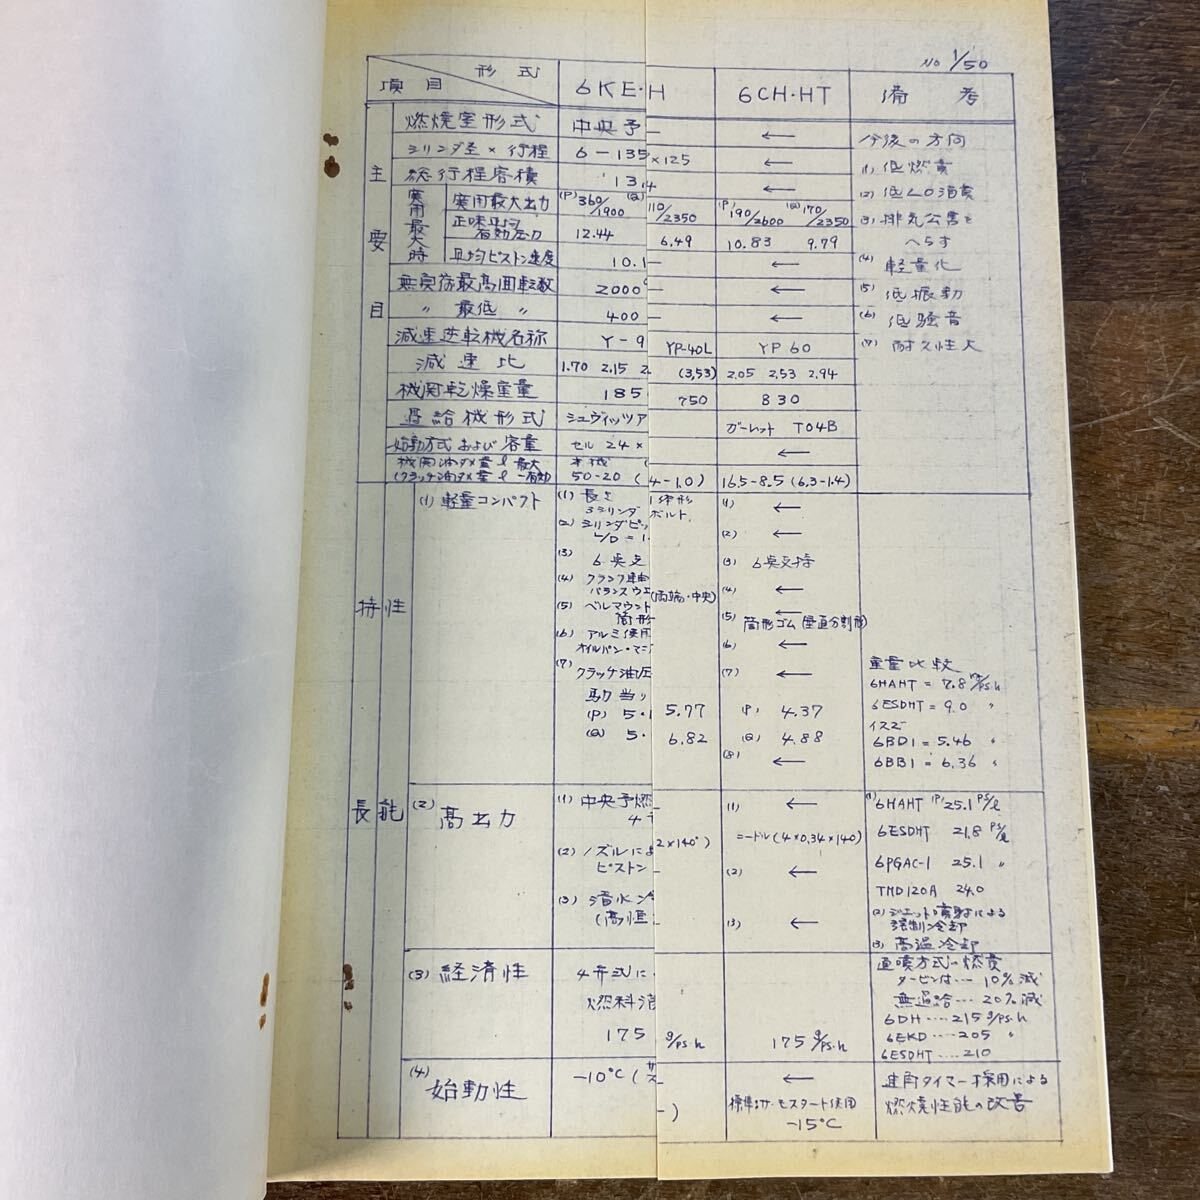 No 1/50
形式
項目
6KE・H
6CH・HT
備考
主要目
燃焼室形式
中央予
←
シリンダ径×行程
6－135
×125
←
総行程容積
13.4
←
実用最大時
実用最大出力
(P)360/1900 (Q)
110/2350
(P)190/2600 (Q)170/2350
正味平均有効圧力
12.44
6.49
10.83 9.79
平均ピストン速度
10.1
←
無負荷最高回転数
2000
←
〃 最低 〃
400
←
減速逆転機名称
Y-9
YP-40L
YP 60
減速比
1.70 2.15 2.
(3.53)
2.05 2.53 2.94
機関乾燥重量
185
750
830
過給機形式
シュヴィッツア
ガーレット T04B
始動方式および容量
セル 24×
←
機関油ダメ量 ℓ 最大
(クラッチ油ダメ量 ℓ －有効)
50-20 (
4-1.0)
16.5-8.5 (6.3-1.4)
今後の方向
(1) 低燃費
(2) 低L.O消費
(3) 排気公害をへらす
(4) 軽量化
(5) 低振動
(6) 低騒音
(7) 耐久性大
特性
長能
(1) 軽量コンパクト
(1) 長さ
3シリンダ
(2) シリンダピッ
L/D = 1.
(3) 6点支
(4) クランク軸
バランスウエ
(5) ベルマウント
筒形
(6) アルミ使用
オイルパン・マニ
(7) クラッチ油圧
馬力当り
(P) 5.1
(Q) 5.
1体形
ボルト,
(両端・中央)
5.77
6.82
(1) ←
(2) ←
(3) 6点支持
(4) ←
(5) ←
筒形ゴム(垂直分割形)
(6) ←
(7) ←
(P) 4.37
(Q) 4.88
(8) ←
重量比較
6HAHT = 7.8 kg/ps.h
6ESDHT = 9.0 〃
イスズ
6BD1 = 5.46 〃
6BB1 = 6.36 〃
(2) 高出力
(1) 中央予燃
(2) ノズルによ
ピストン
(3) 清水冷
(高恒
2×140°)
(1) ←
ニードル(4×0.34×140)
(2) ←
(3) ←
(1) 6HAHT (P) 25.1 PS/ℓ
6ESDHT 21.8 PS/ℓ
6PGAC-1 25.1 〃
TMD120A 24.0
(2) ジェット噴射による
強制冷却
(3) 高温冷却
(3) 経済性
4弁式に
燃料消
175
g/ps.h
175 g/ps.h
直噴方式の燃費
タービンは… 10%減
無過給… 20%減
6DH …. 215 g/ps.h
6EKD …. 205 〃
6ESDHT …. 210
(4) 始動性
-10°C (
)
←
標準サーモスタート使用
-15°C
進角タイマー採用による
燃焼性能の改善